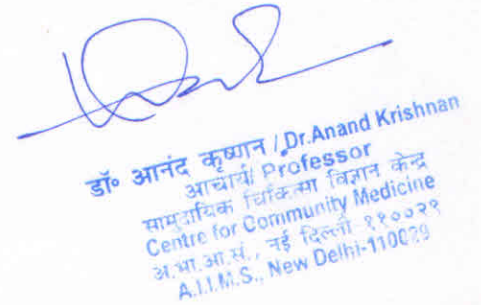 डॉ० आनंद कृष्णन / Dr.Anand Krishnan
आचार्य/ Professor
सामुदायिक चिकित्सा विज्ञान केन्द्र
Centre for Community Medicine
अ.भा.आ.सं., नई दिल्ली-११००२९
A.I.I.M.S., New Delhi-110029